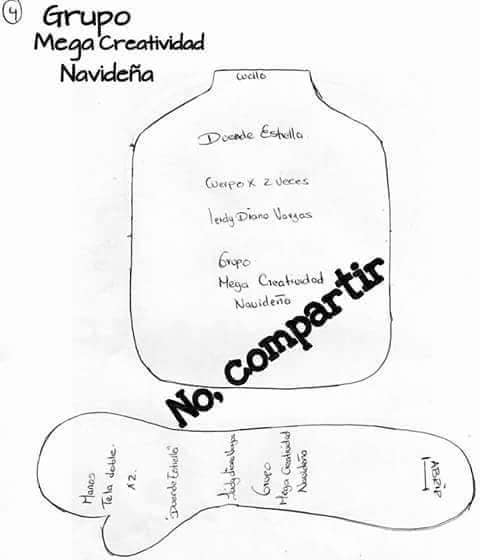 4
Grupo
Mega Creatividad
Navideña
cuello
Duende Estrella
Cuerpo x 2 veces
leidy Diana Vargas
Grupo
Mega Creatividad
Navideña
No, compartir
Manos
Tela doble.
x2.
"Duende Estrella"
Leidy Diana Vargas
Grupo
Mega Creatividad
Navideña
ABRIR